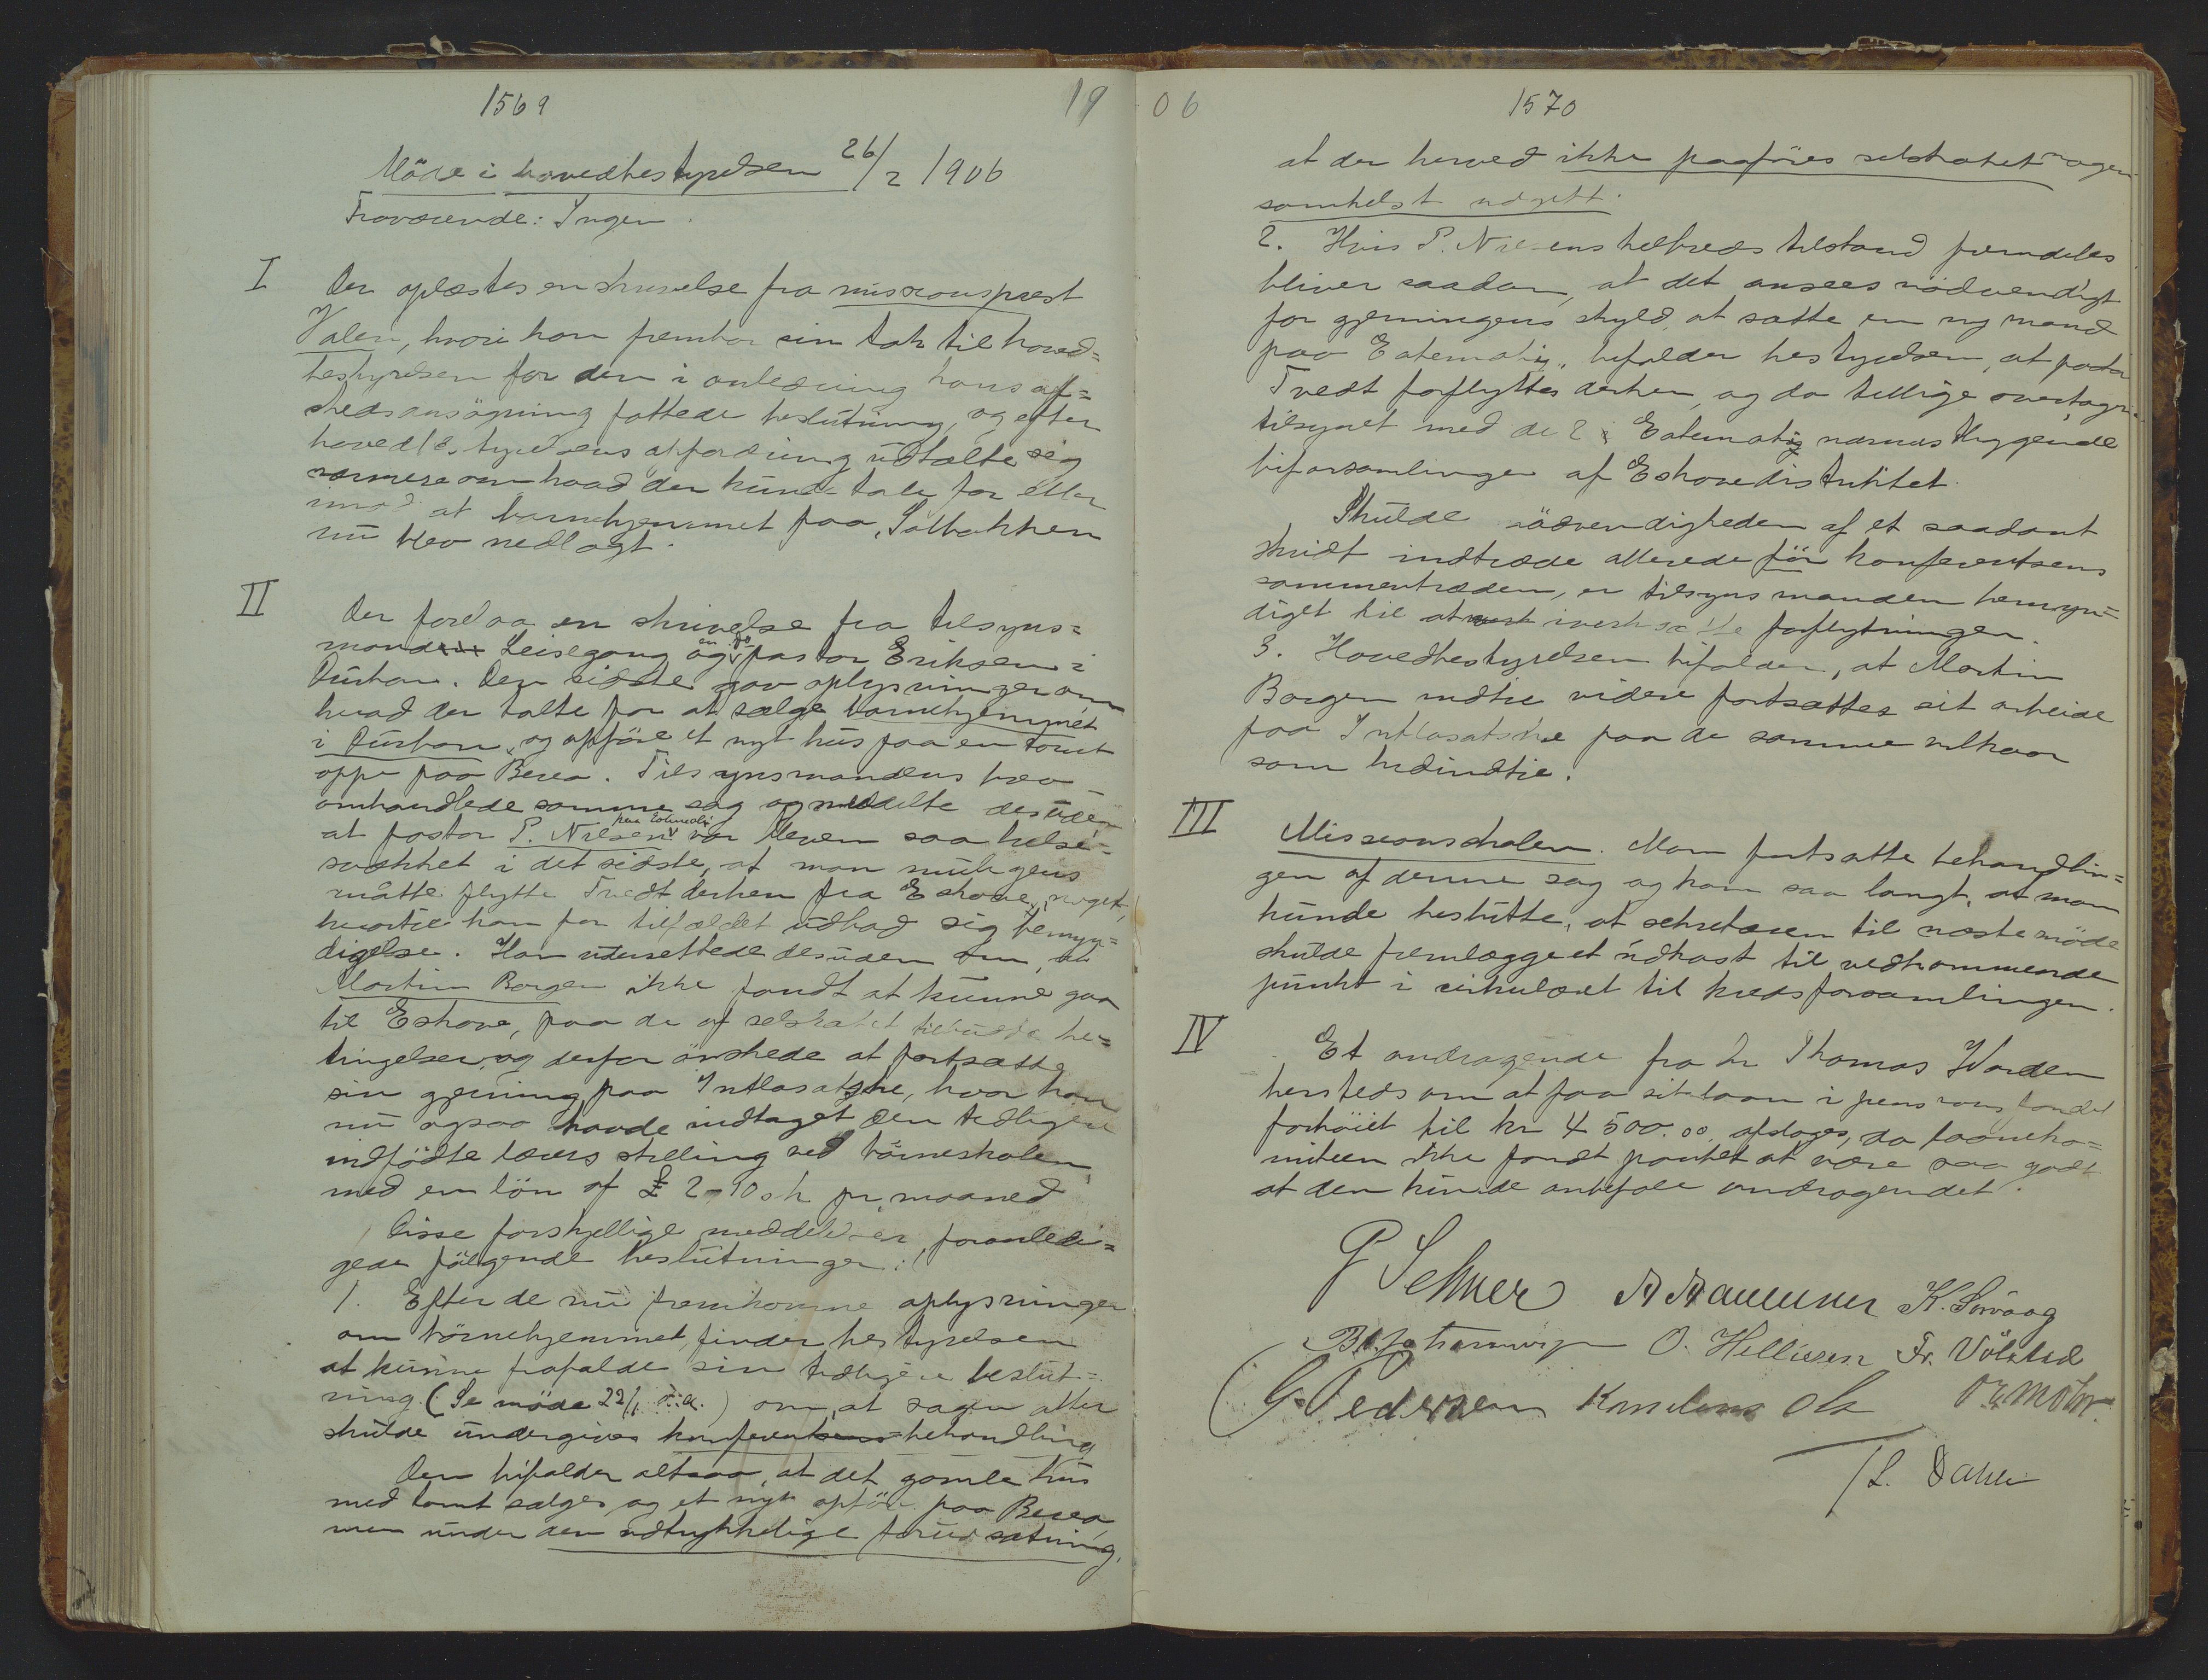 1569
19
Möde i hovedbestyrelsen 26/2 1906
Fraværende: Ingen.
I Der oplæstes en skrivelse fra missionsprest
Valen, hvori han frembar sin tak til hoved=
bestyrelsen for den i anledning hans af=
skedsansögning fattede beslutning, og efter
hovedbestyrelsens opfordring udtalte sig
nærmere om hvad der kunde tale for eller
imod at barnehjemmet paa Solbakken
nu blev nedlagt.
II Der forelaa en skrivelse fra tilsyns=
manden Leisegang og en fra pastor Eriksen i
Durban. Den sidste gav oplysninger om
hvad der talte for at sælge barnehjemmet
i Durban, og opföre et nyt hus paa en tomt
oppe paa Berea. Tilsynsmandens brev
omhandlede samme sag og meddelte desuden
at pastor P. Nilsen paa Eotimati var bleven saa helse=
svækket i det sidste, at man muligens
måtte flytte Tvedt derhen fra Eshowe, noget,
hvortil han for tilfældet udbad sig bemyn=
digelse. Han underrettede desuden om, at
Martin Borgen ikke fandt at kunne gaa
til Eshowe, paa de af selskabet tilbudte be=
tingelser, og derfor önskede at fortsætte
sin gjerning paa Intlasatshe, hvor han
nu ogsaa havde indtaget den tidligere
indfödte lærers stilling ved börneskolen
med en lön af £ 2-10 sh pr. maaned
Disse forskjellige meddelelser, foranledi=
gede fölgende beslutninger:
1. Efter de nu fremkomne oplysninger
om börnehjemmet, finder bestyrelsen
at kunne frafalde sin tidligere beslut=
ning (Se möde 22/1 d.a.) om, at sagen atter
skulde undergives konferentsens=behandling
Den bifalder altsaa, at det gamle hus
med tomt sælges og et nyt opföres paa Berea,
men under den udtrykkelige forudsætning,
06
1570
at der herved ikke paaföres selskabet nogen
somhelst udgift.
2. Hvis P. Nilsens helbredstilstand fremdeles
bliver saadan, at det ansees nödvendigt
for gjerningens skyld, at sætte en ny mand
paa Eotimati, bifalder bestyrelsen, at pastor
Tvedt forflyttes derhen, og da tillige overtager
tilsynet med de 2 Eotimati nærmest liggende
biforsamlinger af Eshowedistriktet.
Skulde nödvendigheden af et saadant
skridt indtræde allerede för konferentsens
sammentræden, er tilsynsmanden bemyn=
diget til at iverksætte forflytningen.
3. Hovedbestyrelsen bifalder, at Martin
Borgen indtil videre fortsætter sit arbeide
paa Intlasatshe paa de samme vilkaar
som hidindtil.
III Missionsskolen. Man fortsatte behandlin=
gen af denne sag og kom saa langt, at man
kunde beslutte, at sekretæren til næste möde
skulde fremlægge et udkast til vedkommende
punkt i cirkulæret til kredsforsamlingen.
IV Et andragende fra hr Thomas Warden
hersteds om at faa sit laan i pensionsfondet
forhöiet til kr 4500.00 afsloges, da laaneko=
miteen ikke fandt pantet at være saa godt
at den kunde anbefale andragendet.
K. Sørvaag
O. Hellisen Fr. Völsted
G. Pedersen
L. Dahle